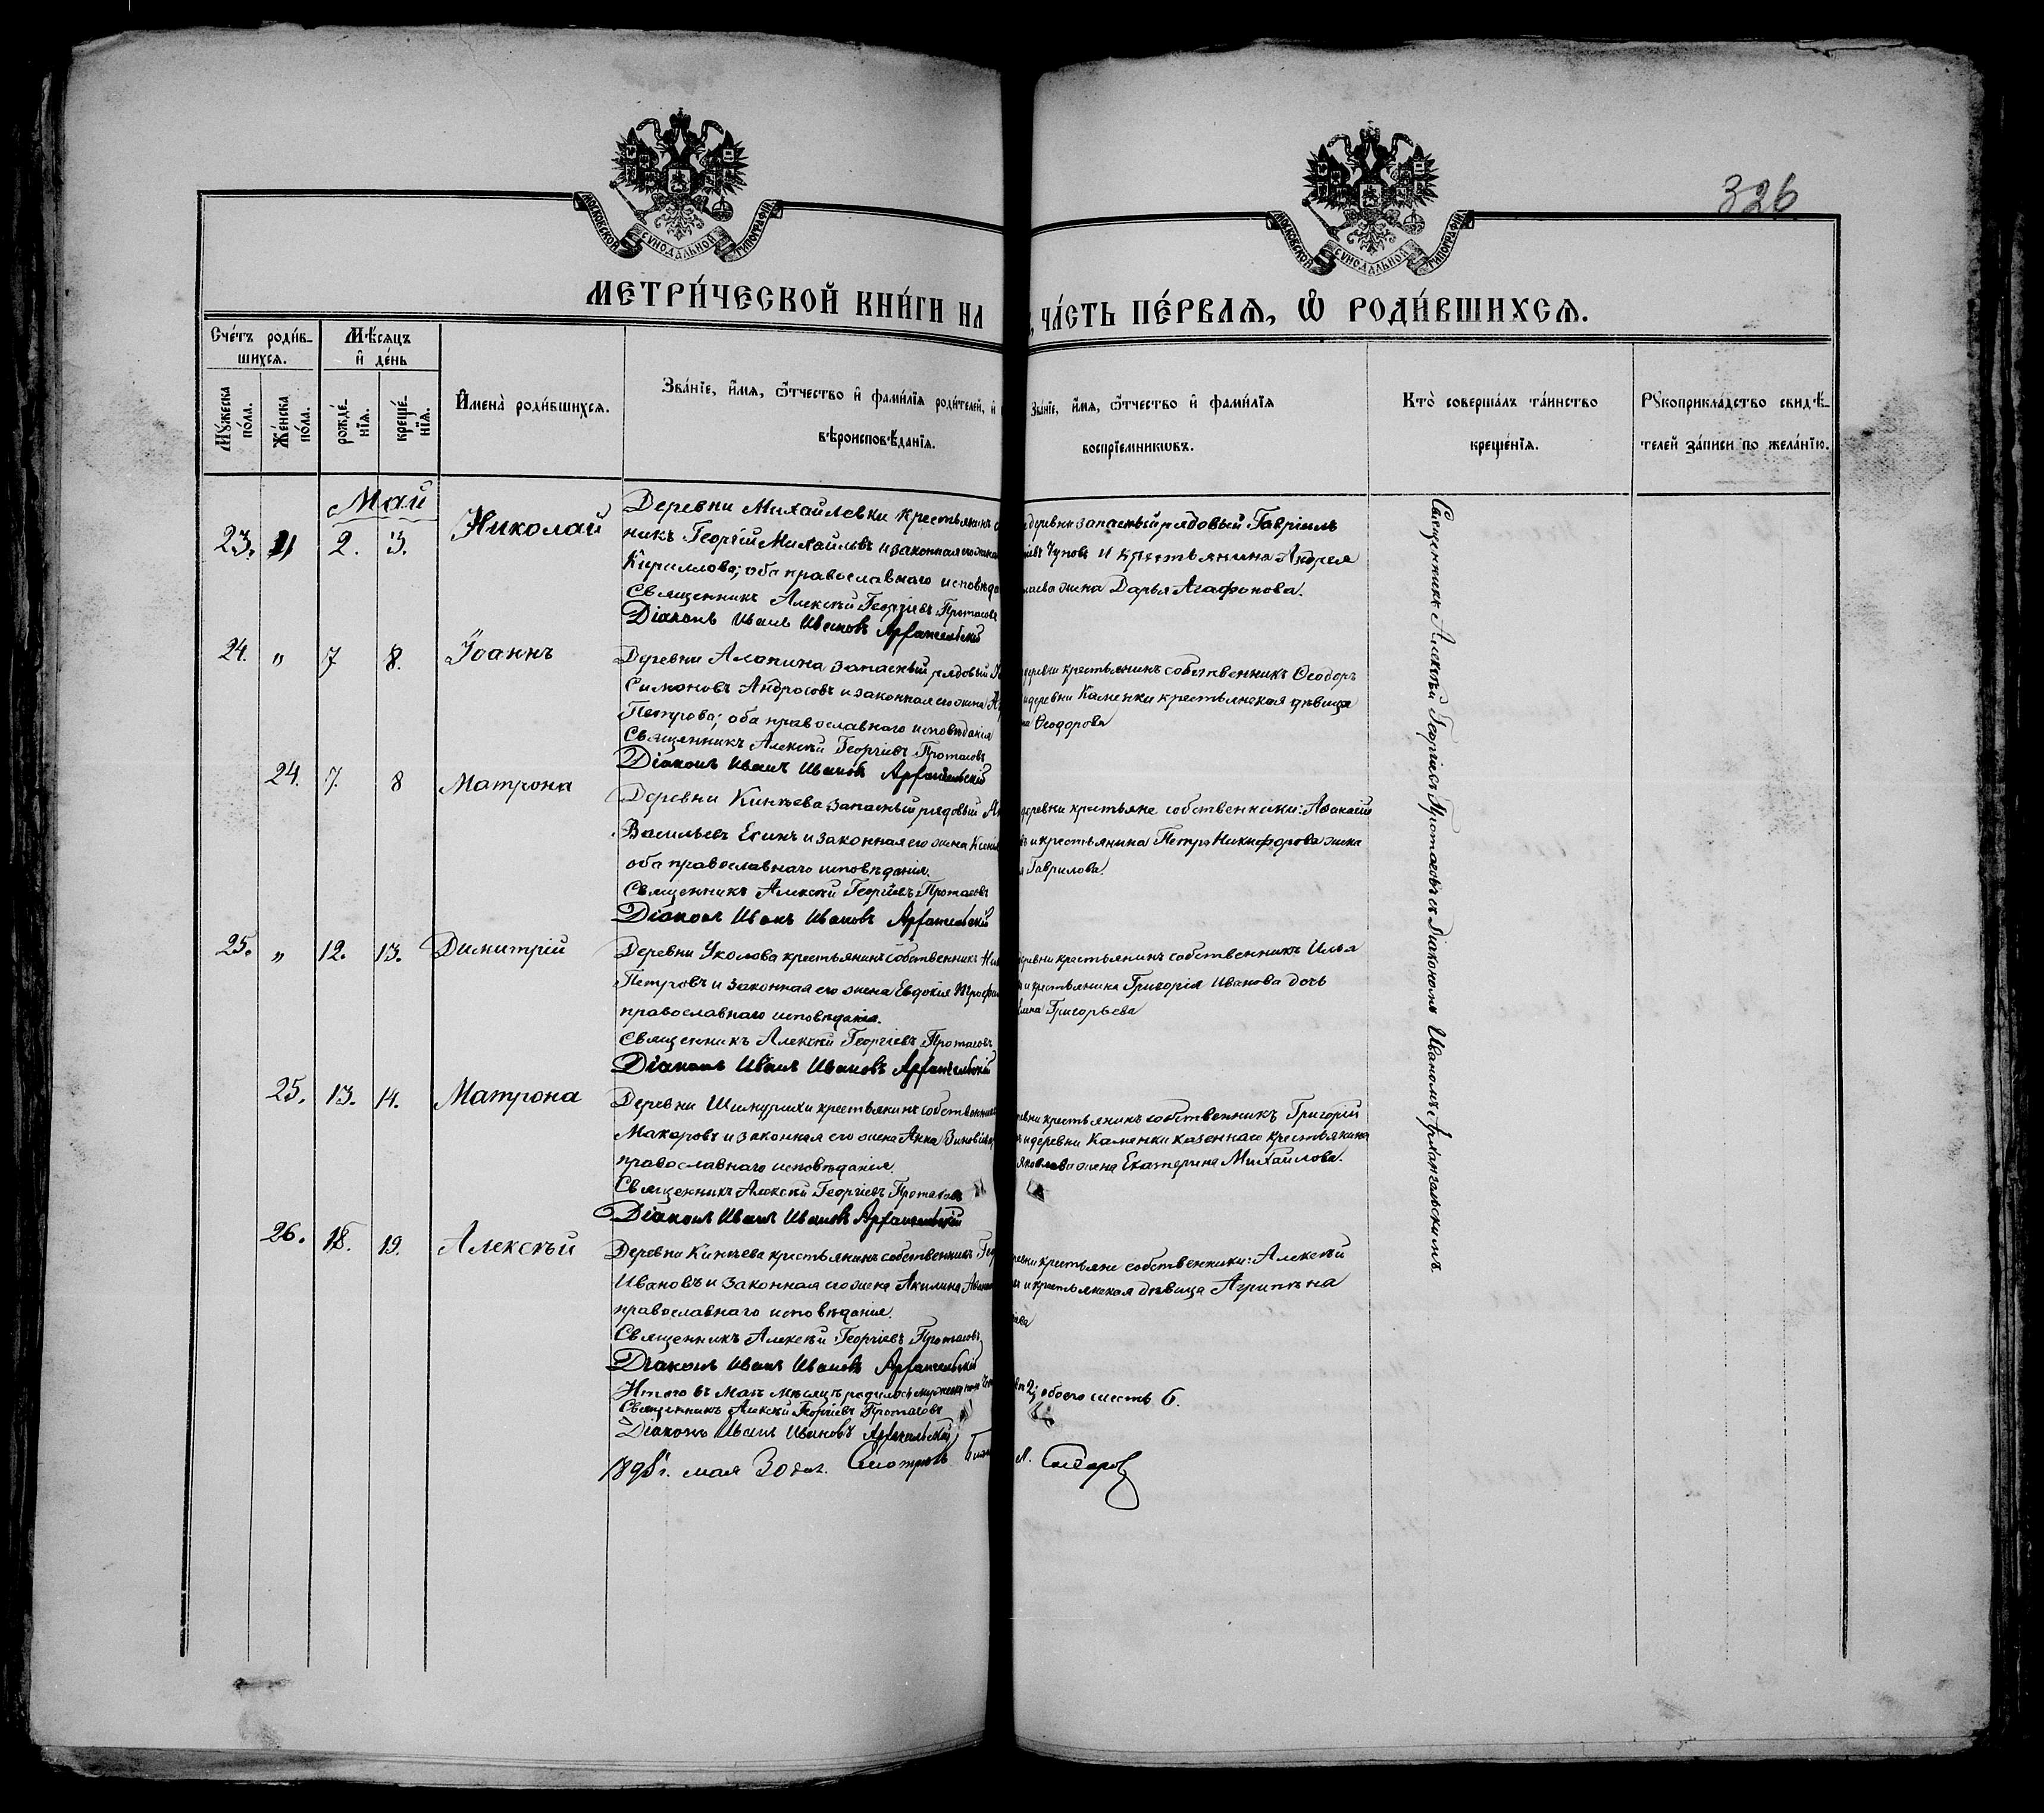 326
МОСКОВСКОЙ СѴНОДАЛЬНОЙ ТИПОГРАФІИ
МОСКОВСКОЙ СѴНОДАЛЬНОЙ ТИПОГРАФІИ
МЕТРИ́ЧЕСКОЙ КНИ́ГИ НА
ЧА́СТЬ ПЕ́РВАѦ, Ѽ РОДИ́ВШИХСѦ.
Сче́тъ роди́в-
шихсѧ.
Мѣ́сѧцъ
и҆ де́нь
Мꙋ́жеска
по́ла.
Же́нска
по́ла.
рожде́-
нїѧ.
креще́-
нїѧ.
И҆мена̀ роди́вшихсѧ.
Зва́нїе, и҆́мѧ, ѻ҆́тчество и҆ фами́лїѧ роди́телей, и҆
вѣроисповѣ́данїѧ.
Зва́нїе, и҆́мѧ, ѻ҆́тчество и҆ фами́лїѧ
воспрїе́мникѡвъ.
Кто̀ соверша́лъ та́инство
креще́нїѧ.
Рꙋкоприкла́дство свидѣ́-
телей за́писи по жела́нїю.
Май
23. 2. 3. Николай
Деревни Михайловки крестьянинъ
никъ Георгій Михайловъ и законная его жена
Кириллова; оба православнаго исповѣда
Священникъ Алексѣй Георгіевъ Протасовъ
Діаконъ Иванъ Ивановъ Архангельскій
деревни запасный рядовый Гавріилъ
Чуповъ и крестьянина Андрея
жена Дарья Агафонова.
24. " 7 8. Іоаннъ
Деревни Алопина запасный рядовый
Симоновъ Андросовъ и законная его жена
Петрова; оба православнаго исповѣданія
Священникъ Алексѣй Георгіевъ Протасовъ
Діаконъ Иванъ Ивановъ Архангельскій
деревни крестьянинъ собственникъ Ѳеодоръ
и деревни Каменки крестьянская дѣвица
Ѳеодорова
24. 7. 8 Матрона
Деревни Кинѣева запасный рядовый
Васильевъ Есинъ и законная его жена
оба православнаго исповѣданія.
Священникъ Алексѣй Георгіевъ Протасовъ
Діаконъ Иванъ Ивановъ Архангельскій
деревни крестьяне собственники: Аѳанасій
и крестьянина Петра Никифорова жена
Гаврилова.
25. " 12. 13. Димитрій
Деревни Уколова крестьянинъ собственникъ
Петровъ и законная его жена Евдокія
православнаго исповѣданія.
Священникъ Алексѣй Георгіевъ Протасовъ
Діаконъ Иванъ Ивановъ Архангельскій
крестьянинъ собственникъ Илья
и крестьянина Григорія Иванова дочь
Григорьева
25. 13. 14. Матрона
Деревни крестьянинъ собственникъ
Макаровъ и законная его жена Анна
православнаго исповѣданія.
Священникъ Алексѣй Георгіевъ Протасовъ
Діаконъ Иванъ Ивановъ Архангельскій
крестьянинъ собственникъ Григорій
и деревни Каменки казеннаго крестьянина
Яковлева жена Екатерина Михайлова.
26. 18. 19. Алексѣй
Деревни Кинѣева крестьянинъ собственникъ
Ивановъ и законная его жена Акилина
православнаго исповѣданія.
Священникъ Алексѣй Георгіевъ Протасовъ
Діаконъ Иванъ Ивановъ Архангельскій
крестьяне собственники: Алексѣй
и крестьянская дѣвица Агрипѣна
Итого въ Маѣ мѣсяцѣ родилось мужеска пола
2; обоего шесть 6.
Священникъ Алексѣй Георгіевъ Протасовъ
Діаконъ Иванъ Ивановъ Архангельскій
мая 30 дня. Смотрѣлъ
Священникъ Алексѣй Георгіевъ Протасовъ съ Діакономъ Иваномъ Архангельскимъ